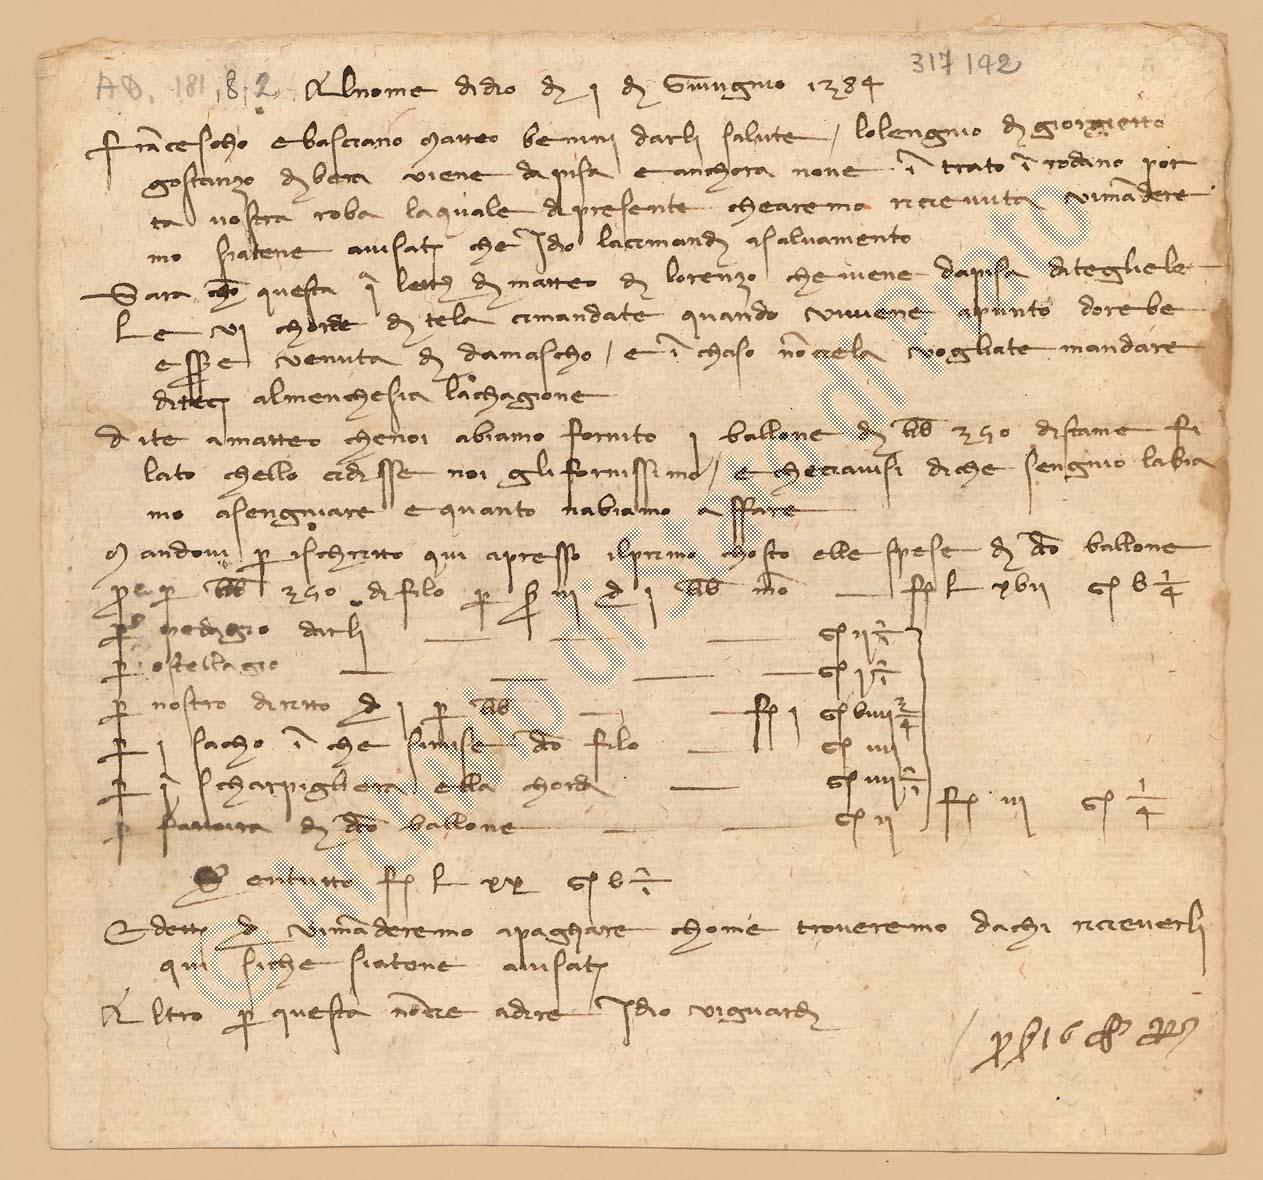 317 142
AD. 181 18.2 Al nome didio di 1 di Giungnio 1384
Francescho e basciano Matteo benini darli salute / lo lengnio di giorgetto
gostanzo di bera viene da pisa e anchora none i trato i rodano por
ta vostra roba la quale di presente che aremo ricievuta vi manderे
mo siatene avisati che Idio la ci mandi a salvamento
Sara cho questa i lettera di matteo di lorenzo che viene da pisa ditegliele
Le VI chorde di tela ci mandate quando vi viene apunto dorebe
essere venuta di damascho / e i chaso no ciela vogliate mandare
diteci almenche sia la chagione
Dite a matteo che noi abiamo fornito 1 ballone di lbb 350 di stame fi
lato chello ci disse noi gli fornissimo / e che ci avisi di che sengnio labia
mo a sengniare e quanto nabiamo affare
Mandovi p ischritto qui apresso il primo chosto elle spese di dto ballone
p lbb 350 di filo p s III d 1 lbb mo — ff L XVII s V 1/4
p pedagio darli — s II 1/2
p ostellagio — s I 1/2
p nostro diritto d 1 p lbb — ff I s VIIII 3/4
p 1 sacho i che si mise dto filo — s IIII
p i scharpigliera ella chorda — s IIII 1/2
p fattura di dto ballone — s II
ff III s 1/4
E entutto ff L XX s V 1/2
E detti d vi manderemo a paghare chome troveremo da chi ricieverli
qui siche siatene avisati
Altro p questa no cie a dire Idio vi guardi